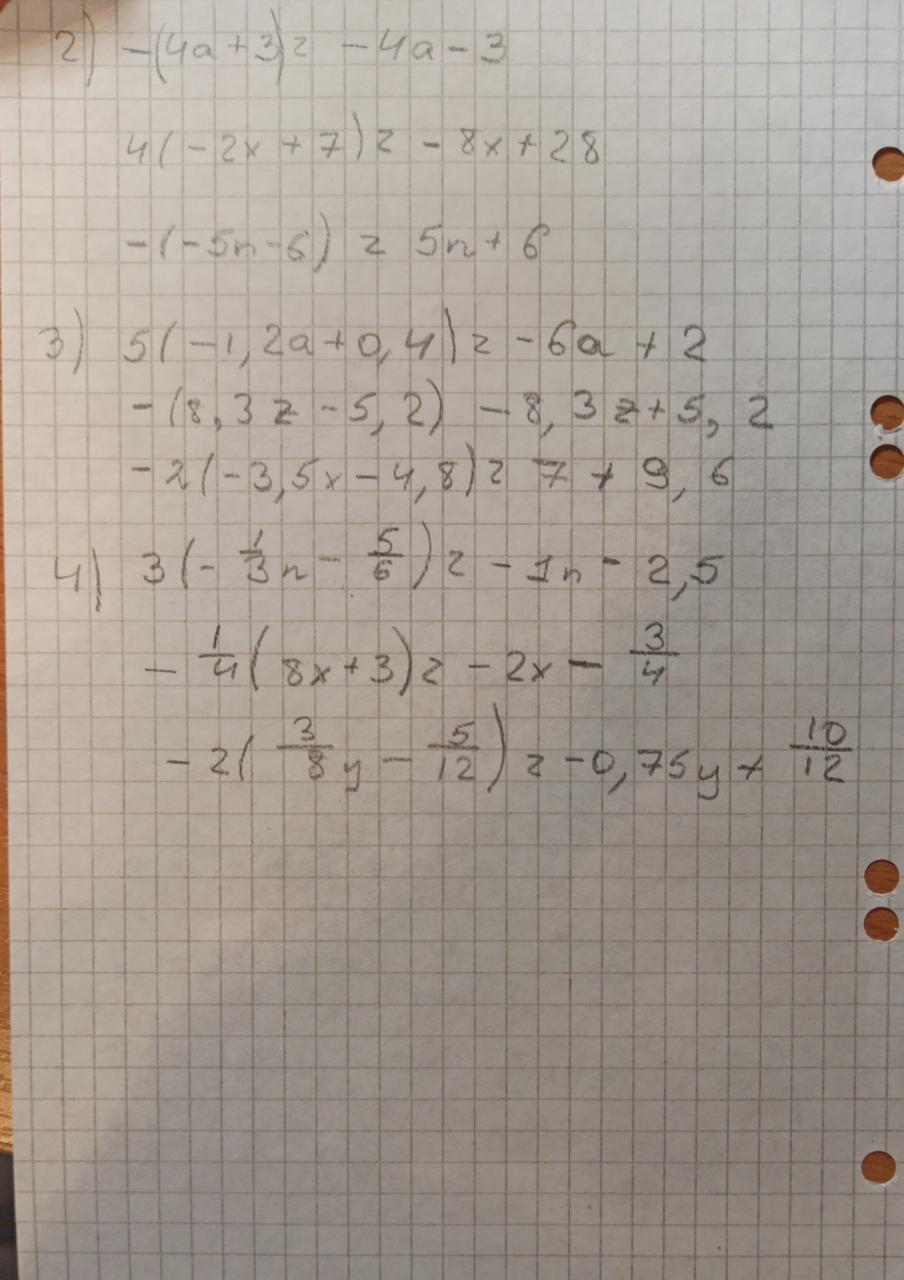 2) -(4a+3) = -4a-3
4(-2x+7) = -8x+28
-(-5n-6) = 5n+6
3) 5(-1,2a+0,4) = -6a+2
-(8,3z-5,2) -8,3z+5,2
-2(-3,5x-4,8) = 7+9,6
4) 3(-1/3n-5/6) = -1n-2,5
-1/4(8x+3) = -2x-3/4
-2(3/8y-5/12) = -0,75y+10/12